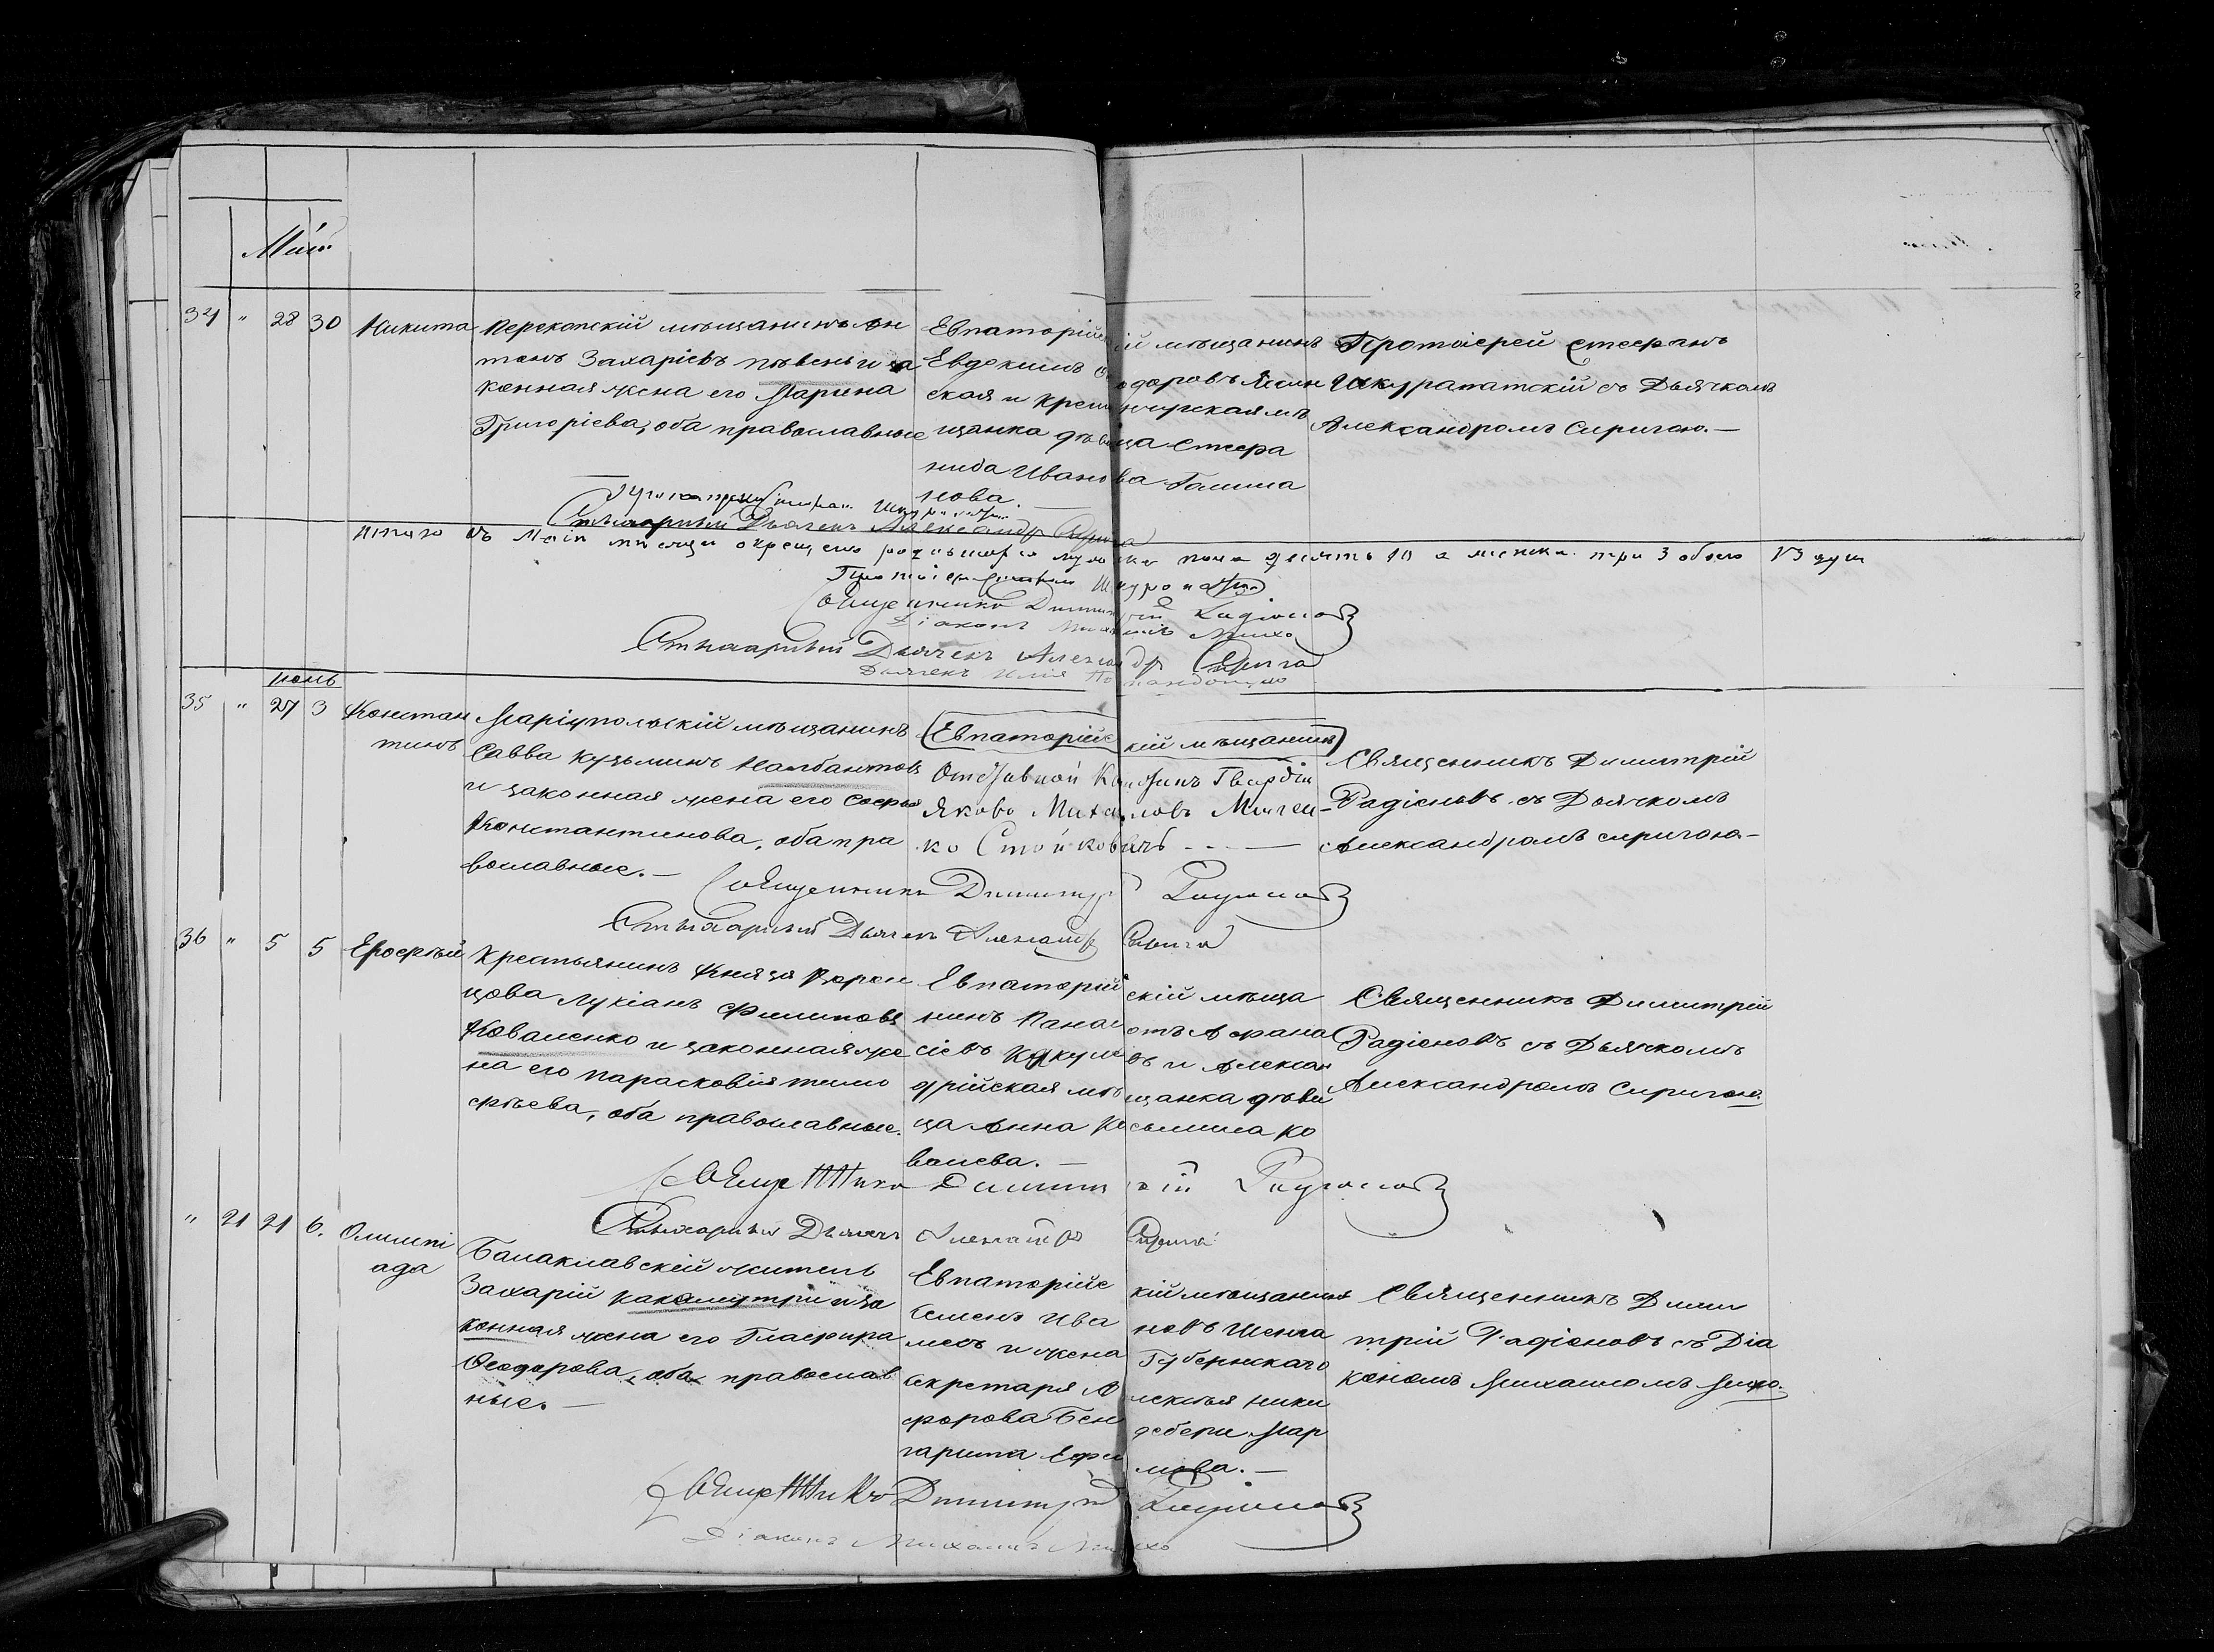 Май
34 " 28 30 Никита
Перекопскій мѣщанинъ Ан
тонъ Захаріевъ Пѣвень и за
конная жена его Марина
Григоріева, оба православные
Евпаторійскій мѣщанинъ
Евдокимъ Ѳеодоровъ
ская и Кременчугская мѣ
щанка дѣвица Стефа
нида Иванова Галина
нова.
Протоіерей Стефанъ
Шкурапатскій съ Дьячкомъ
Александромъ Сиригою.—
Стихарный Дьячекъ Александръ Сирига
Итого въ Маіи мѣсяцѣ окрещено родившихся мужеска пола десять 10 а женска три 3 обоего 13 душ
Священникъ Димитрій Радіоновъ
Діаконъ Михаилъ Михо
Стихарный Дьячекъ Александръ Сирига
Дьячекъ Илія
Іюнь
35 " 27 3 Констан
тинъ
Маріупольскій мѣщанинъ
Савва Кузьминъ Налбантовъ
и законная жена его Софья
Константинова, оба пра
вославные.—
(Евпаторійскій мѣщанинъ)
Отставной Гвардіи
Яковъ Михаиловъ
Священникъ Димитрій
Радіоновъ съ Дьячкомъ
Александромъ Сиригою—
Священникъ Димитрій Радіоновъ
Стихарный Дьячекъ Александръ Сирига
36 " 5 5 Ерофѣй
Крестьянинъ Князя Ворон
цова Лукіанъ Филиповъ
Коваленко и законная же
на его Парасковія Тимо
фѣева, оба православные.
Евпаторійскій мѣща
нинъ Панаіотъ Афана
сіевъ и Алексан
дрійская мѣщанка дѣви
ца Анна Косьмина Ко
валева.—
Священникъ Димитрій
Радіоновъ съ Дьячкомъ
Александромъ Сиригою.
Священникъ Димитрій Радіоновъ
Стихарный Дьячекъ Александръ Сирига
" 21 21 6. Олимпі
ада
Балаклавскій житель
Захарій Какамутри и за
конная жена его Глафира
Ѳеодорова, оба православ
ные.—
Евпаторійскій мѣщанинъ
Семенъ Ивановъ
и жена Губернскаго
Секретаря Алексѣя Ники
форова Бендебери Мар
гарита Ефимова.—
Священникъ Дими
трій Радіоновъ съ Діа
кономъ Михаиломъ Михо.
Священникъ Димитрій Радіоновъ
Діаконъ Михаилъ Михо